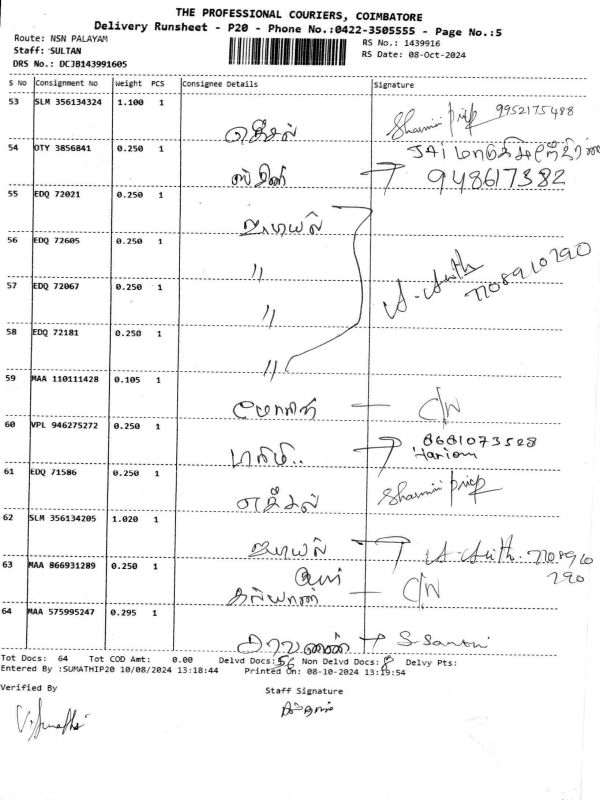 THE PROFESSIONAL COURIERS, COIMBATORE
Delivery Runsheet - P20 - Phone No.:0422-3505555 - Page No.:5
Route: NSN PALAYAM
Staff: SULTAN
DRS No.: DCJB143991605
RS No.: 1439916
RS Date: 08-Oct-2024
S No Consignment No Weight PCS Consignee Details Signature
53 SLM 356134324 1.100 1 Sharmi Priya 9952175488
54 OTY 3856841 0.250 1 JAI
948617382
55 EDQ 72021 0.250 1 ஐடியல்
56 EDQ 72605 0.250 1 "
57 EDQ 72067 0.250 1 " 7708910290
58 EDQ 72181 0.250 1 "
59 MAA 110111428 0.105 1 C/W
60 VPL 946275272 0.250 1 8681073528
Hariom
61 EDQ 71586 0.250 1 எக்சல் Sharmi Priya
62 SLM 356134205 1.020 1 ஐடியல் 7708910
290
63 MAA 866931289 0.250 1 கல்யாண் C/W
64 MAA 575995247 0.295 1 சரவணன் S-Santhi
Tot Docs: 64 Tot COD Amt: 0.00 Delvd Docs: 56 Non Delvd Docs: 8 Delvy Pts:
Entered By :SUMATHIP20 10/08/2024 13:18:44 Printed On: 08-10-2024 13:19:54
Verified By Staff Signature